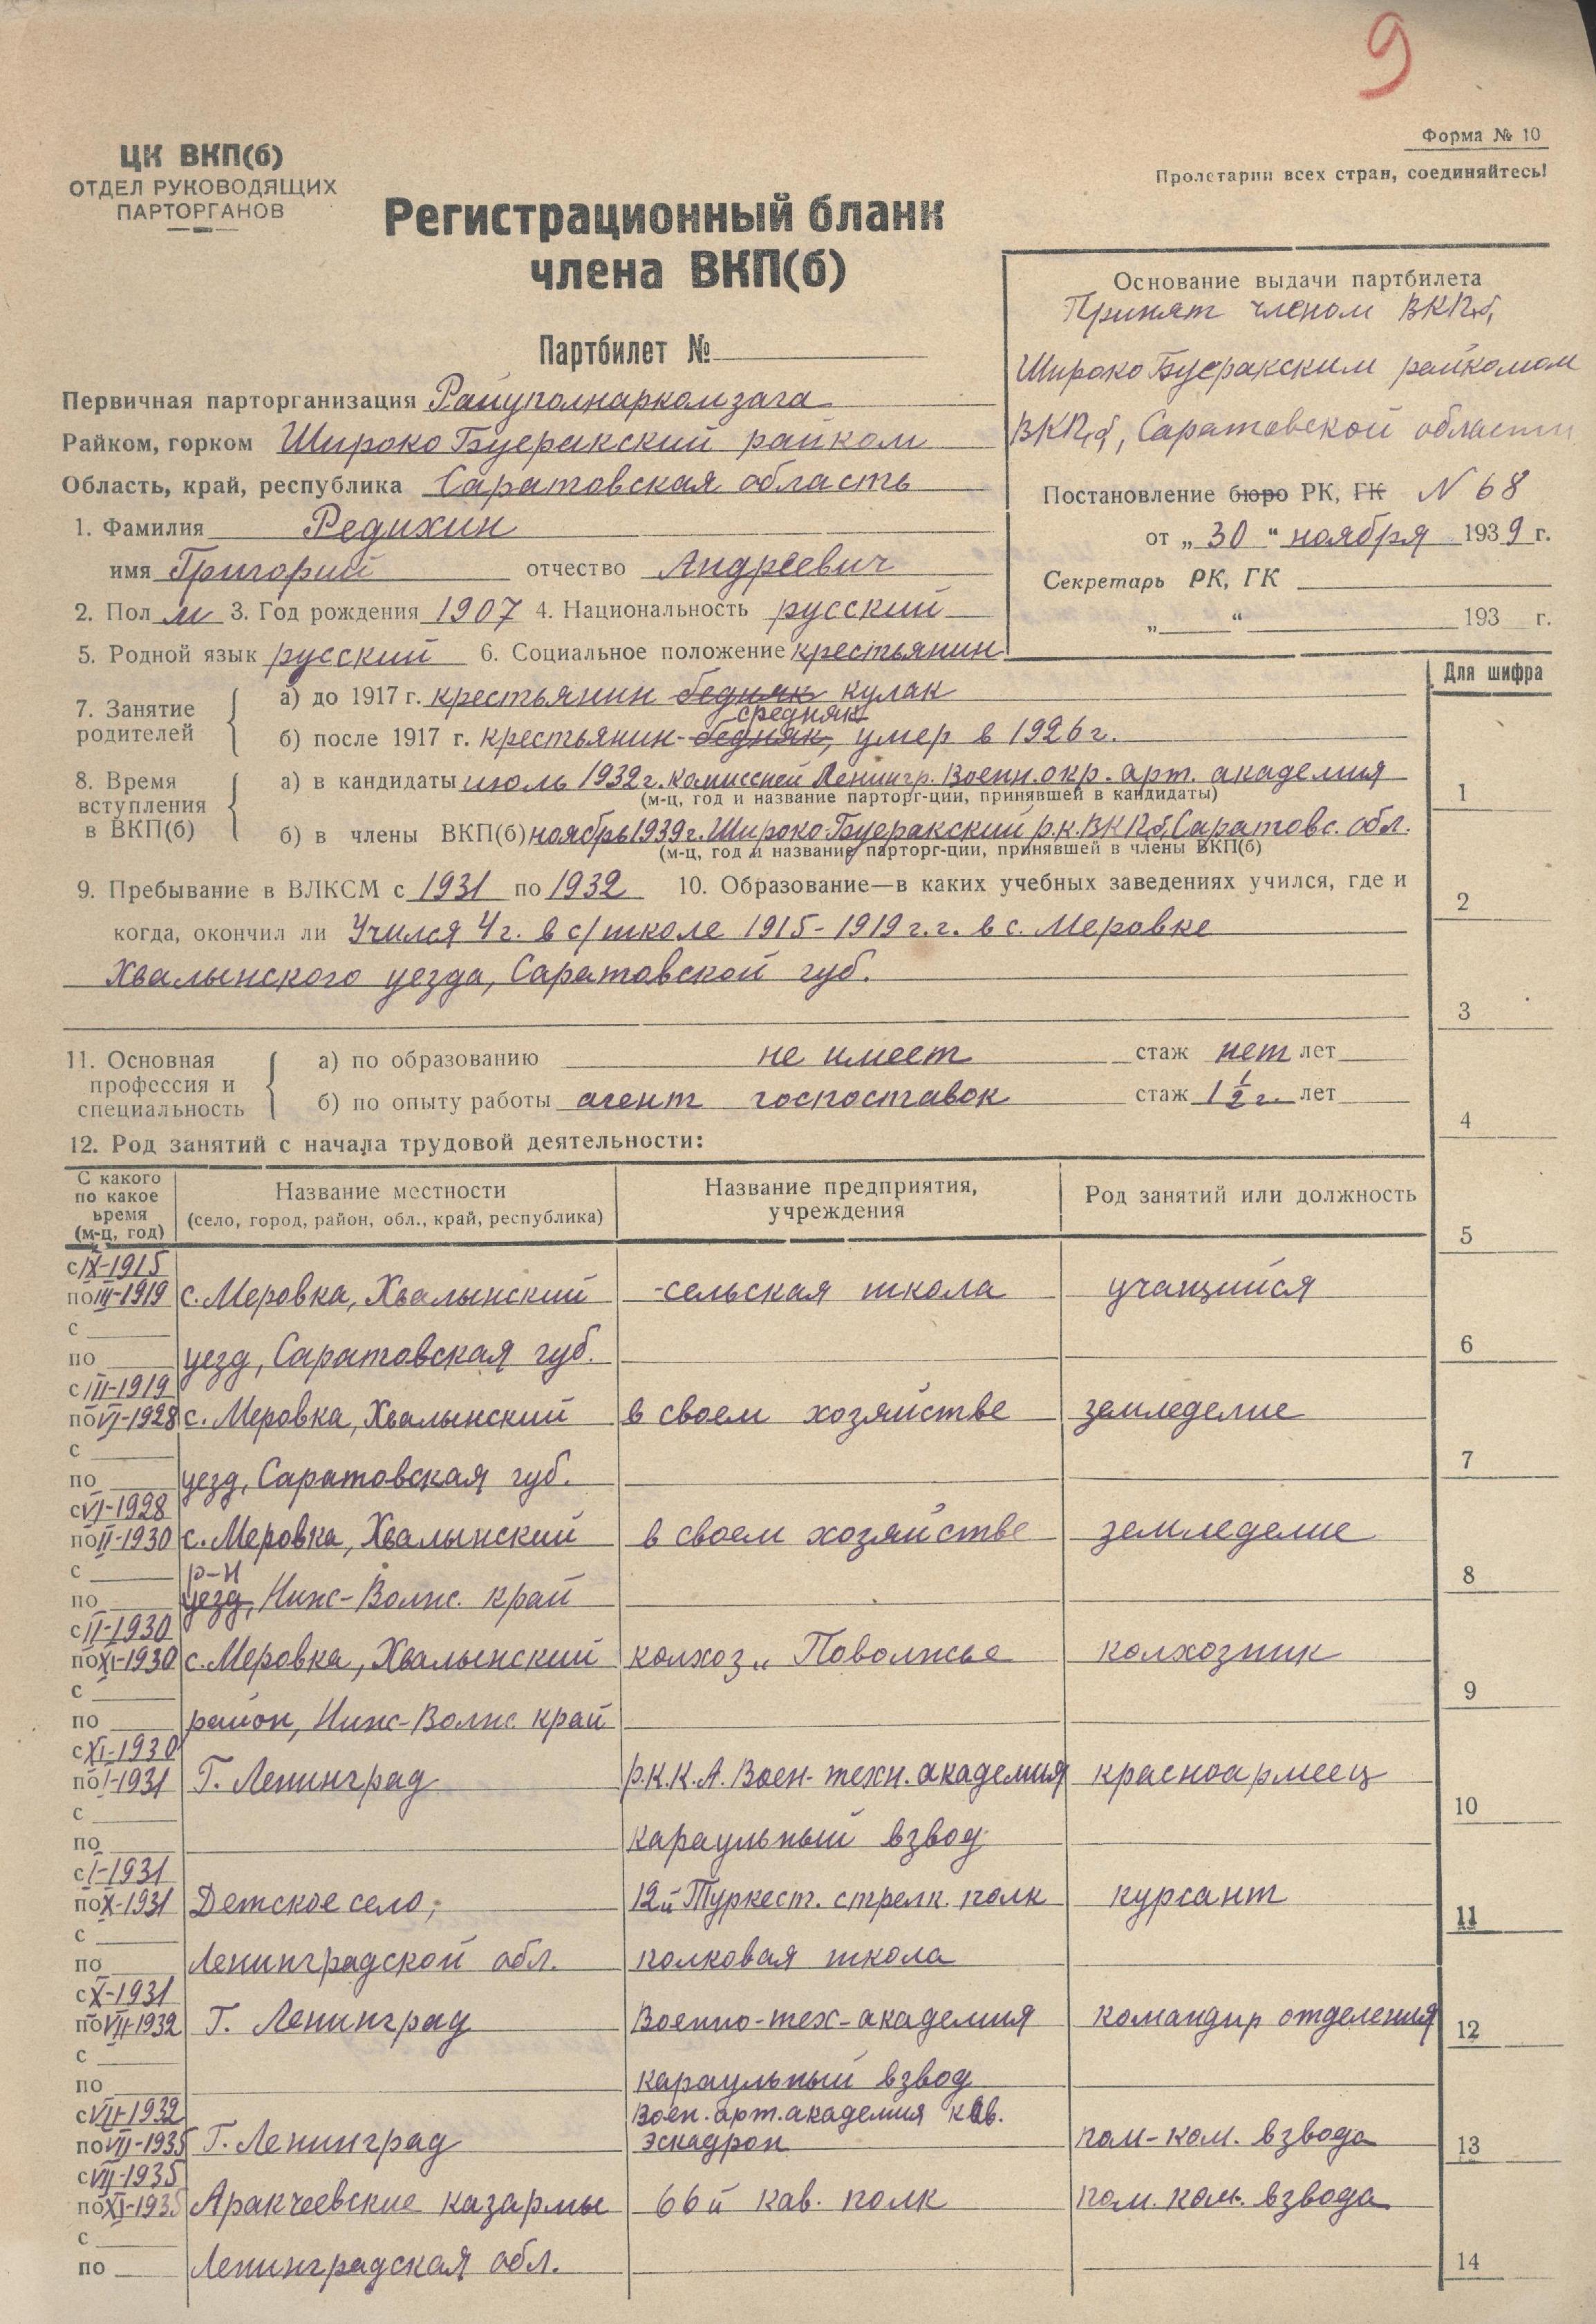 9
Форма № 10
Пролетарии всех стран, соединяйтесь!
ЦК ВКП(б)
ОТДЕЛ РУКОВОДЯЩИХ
ПАРТОРГАНОВ
Регистрационный бланк
члена ВКП(б)
Партбилет №
Основание выдачи партбилета
Принят членом ВКП.б,
Широко Буеракским райкомом
ВКП.б, Саратовской области
Постановление бюро РК, ГК N 68
от „ 30 “ ноября 1939 г.
Секретарь РК, ГК
„ “ 193 г.
Первичная парторганизация Райуполнаркомзага
Райком, горком Широко Буеракский райком
Область, край, республика Саратовская область
1. Фамилия Редихин
имя Григорий отчество Андреевич
2. Пол м 3. Год рождения 1907 4. Национальность русский
5. Родной язык русский 6. Социальное положение крестьянин
Для шифра
7. Занятие родителей
а) до 1917 г. крестьянин бедняк кулак
средняк
б) после 1917 г. крестьянин-бедняк, умер в 1926 г.
8. Время вступления в ВКП(б)
а) в кандидаты июль 1932 г. комиссией Ленингр. Военн. окр. арт. академия
(м-ц, год и название парторг-ции, принявшей в кандидаты)
б) в члены ВКП(б) ноябрь 1939 г. Широко-Буеракский р.к. ВКП.б, Саратовс. обл.
(м-ц, год и название парторг-ции, принявшей в члены ВКП(б)
9. Пребывание в ВЛКСМ с 1931 по 1932 10. Образование—в каких учебных заведениях учился, где и
когда, окончил ли Учился 4 г. в с/школе 1915-1919 г.г. в с. Меровке
Хвалынского уезда, Саратовской губ.
11. Основная профессия и специальность
а) по образованию не имеет стаж нет лет
б) по опыту работы агент госпоставок стаж 1 1/2 г. лет
12. Род занятий с начала трудовой деятельности:
С какого по какое время (м-ц, год) Название местности (село, город, район, обл., край, республика) Название предприятия, учреждения Род занятий или должность
с IX-1915
по III-1919 с. Меровка, Хвалынский -сельская школа учащийся
с
по уезд, Саратовская губ.
с III-1919
по VI-1928 с. Меровка, Хвалынский в своем хозяйстве земледелие
с
по уезд, Саратовская губ.
с VI-1928
по II-1930 с. Меровка, Хвалынский в своем хозяйстве земледелие
с р-н
по уезд, Ниж-Волж. край
с II-1930
по XI-1930 с. Меровка, Хвалынский колхоз „ Поволжье колхозник
с
по район, Ниж-Волж. край
с XI-1930
по I-1931 Г. Ленинград Р.К.К.А. Воен-техн. академия красноармеец
с
по караульный взвод
с I-1931
по X-1931 Детское село, 12й Туркест. стрелк. полк курсант
с
по Ленинградской обл. полковая школа
с X-1931
по VII-1932 Г. Ленинград Военно-тех-академия командир отделения
с
по караульный взвод
с VII-1932 Воен. арт. академия кав.
по VII-1935 Г. Ленинград эскадрон пом-ком. взвода
с VII-1935
по XI-1935 Аракчеевские казармы 66й кав. полк пом. ком. взвода
с
по Ленинградская обл.
1
2
3
4
5
6
7
8
9
10
11
12
13
14